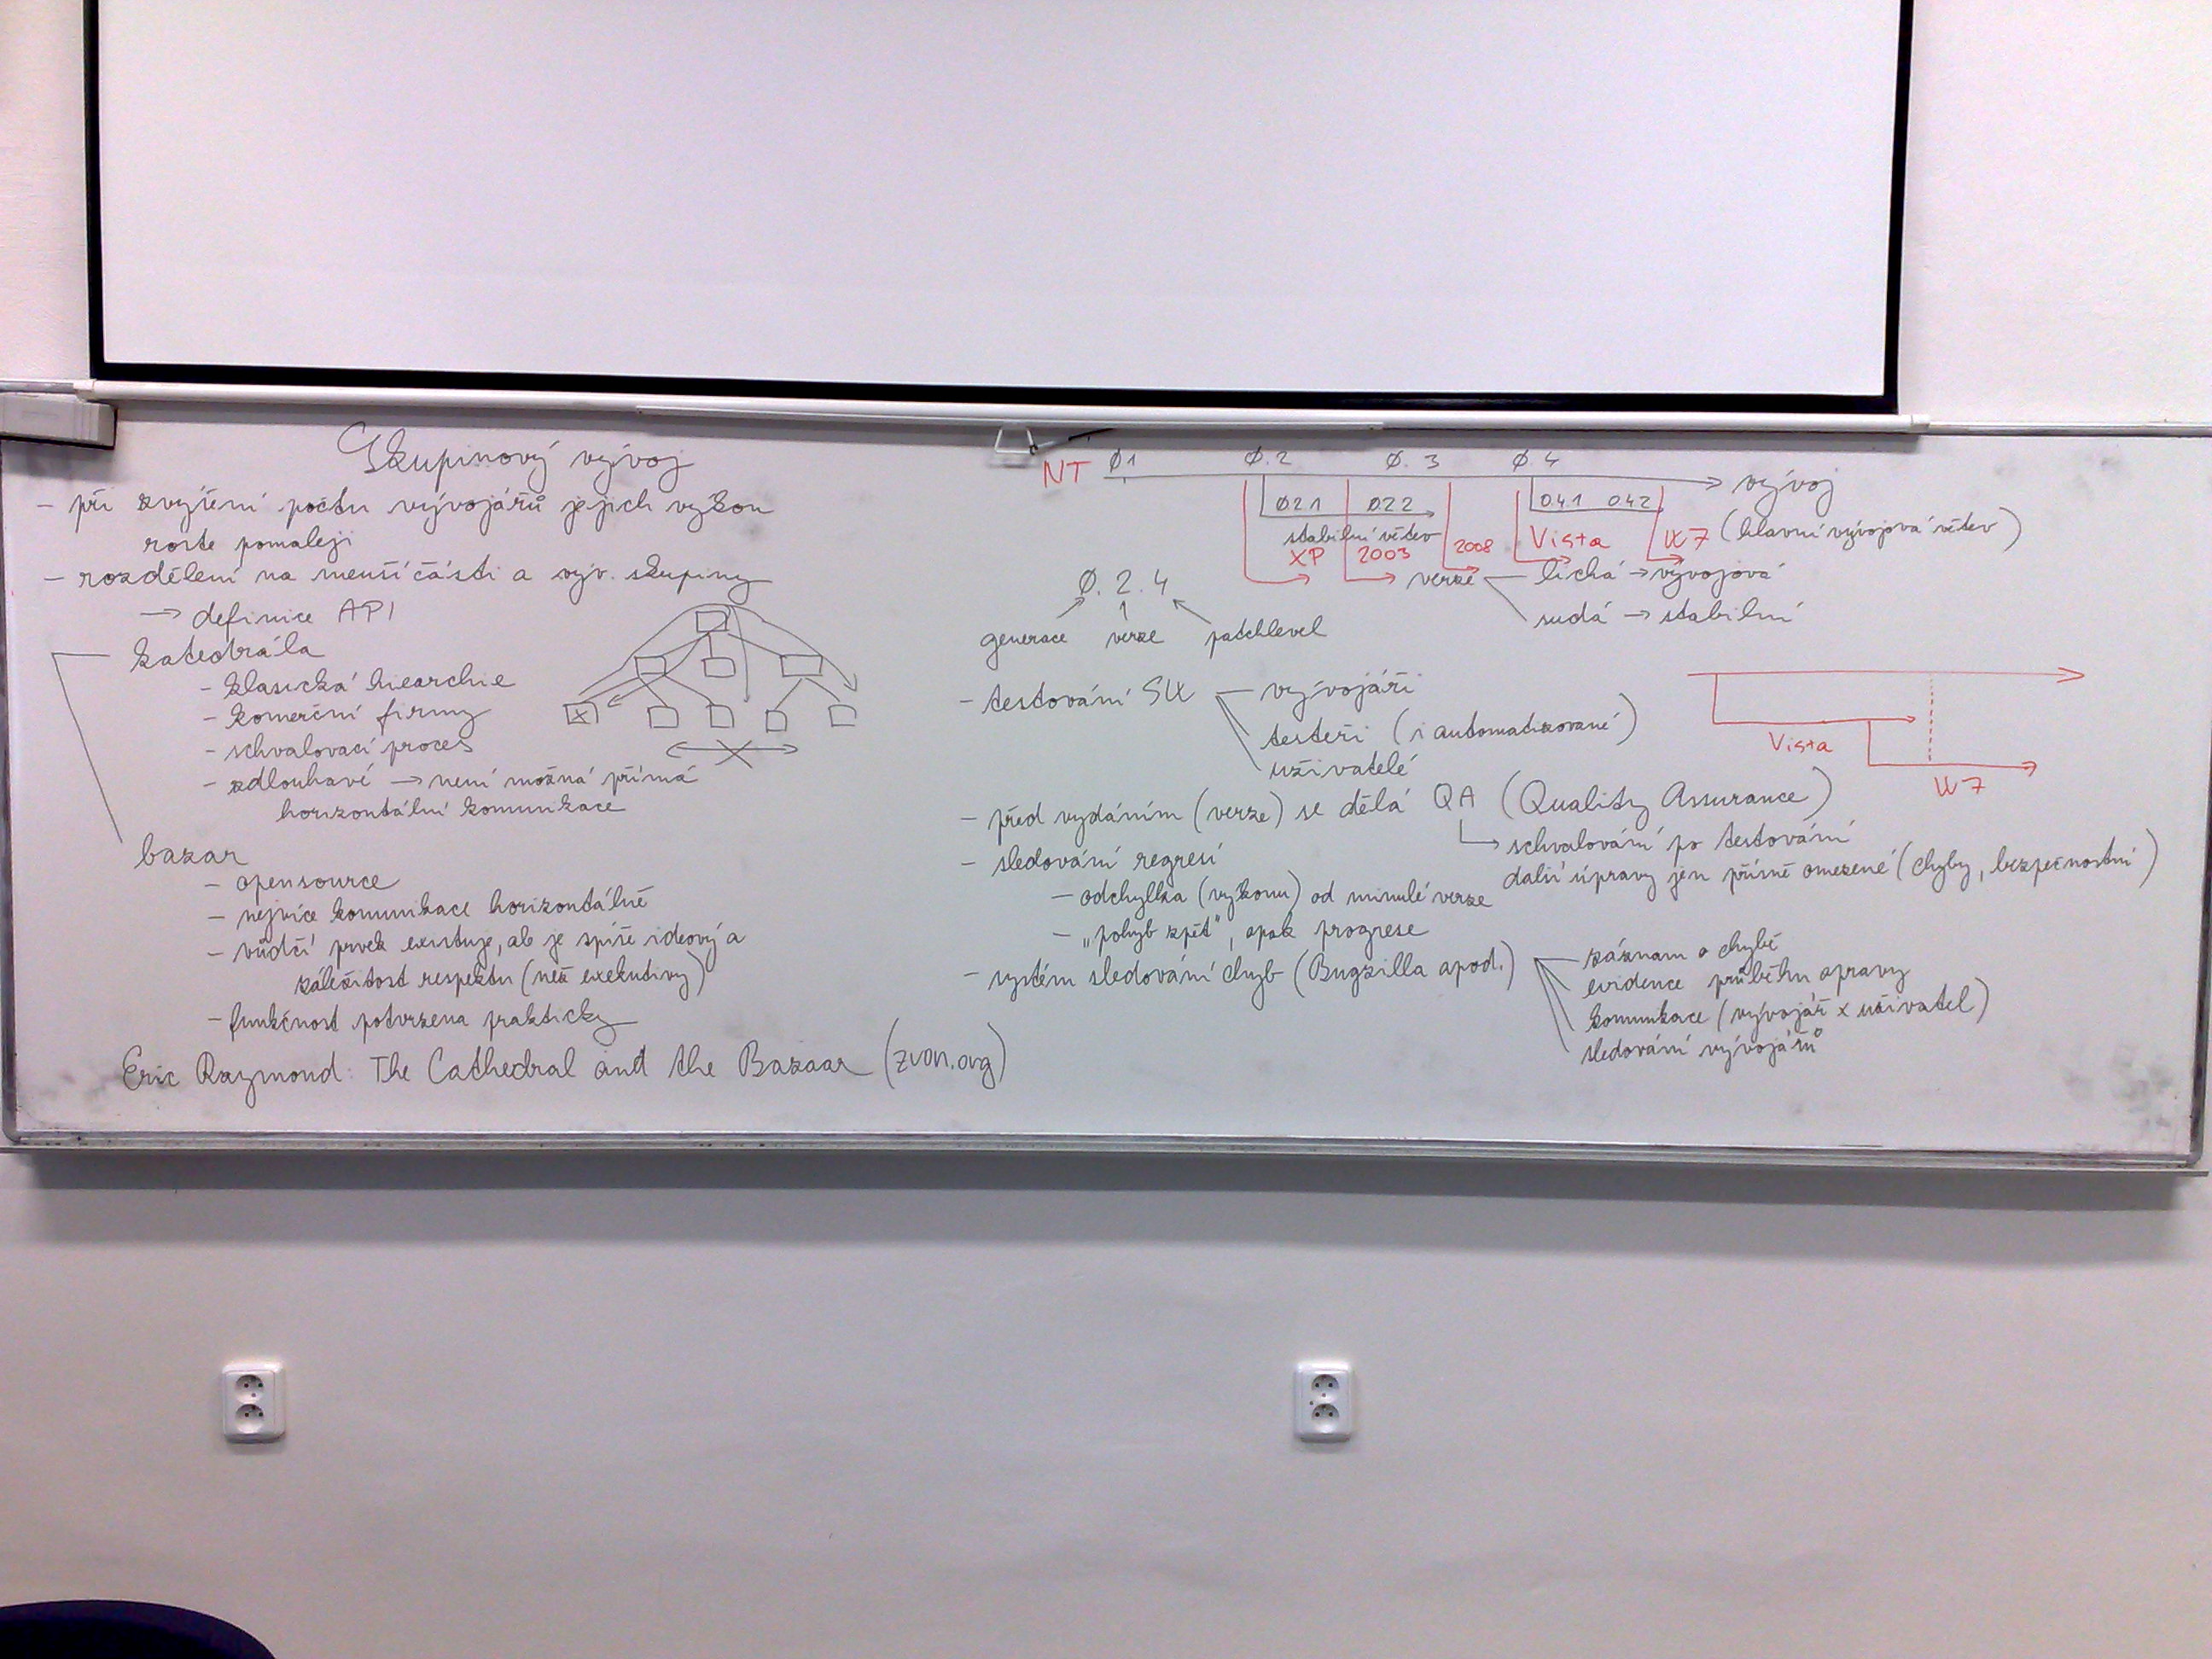 Skupinový vývoj
- při zvýšení počtu vývojářů jejich výkon
roste pomaleji
- rozdělení na menší části a výv. skupiny
→ definice API
katedrála
- klasická hiearchie
- komerční firmy
- schvalovací proces
- zdlouhavé → není možná přímá
horizontální komunikace
bazar
- opensource
- nejvíce komunikace horizontálně
- vůdčí prvek existuje, ale je spíše ideový a
záležitost respektu (než exekutivy)
- funkčnost potvrzena prakticky
Eric Raymond: The Cathedral and the Bazaar (zvon.org)
NT 0.1 0.2 0.3 0.4
vývoj
0.2.1 0.2.2 0.4.1 0.4.2
(hlavní vývojová větev)
stabilní větev
XP 2003 2008 Vista W7
0.2.4
verze lichá → vývojová
sudá → stabilní
generace verze patchlevel
- testování SW vývojáři
testeři (i automatizované)
uživatelé
Vista
W7
- před vydáním (verze) se dělá QA (Quality Assurance)
schvalování po testování
další úpravy jen přísně omezené (chyby, bezpečnostní)
- sledování regresí
- odchylka (výkonu) od minulé verze
- „pohyb zpět", opak progrese
- systém sledování chyb (Bugzilla apod.)
záznam o chybě
evidence průběhu opravy
komunikace (vývojář x uživatel)
sledování vývojářů